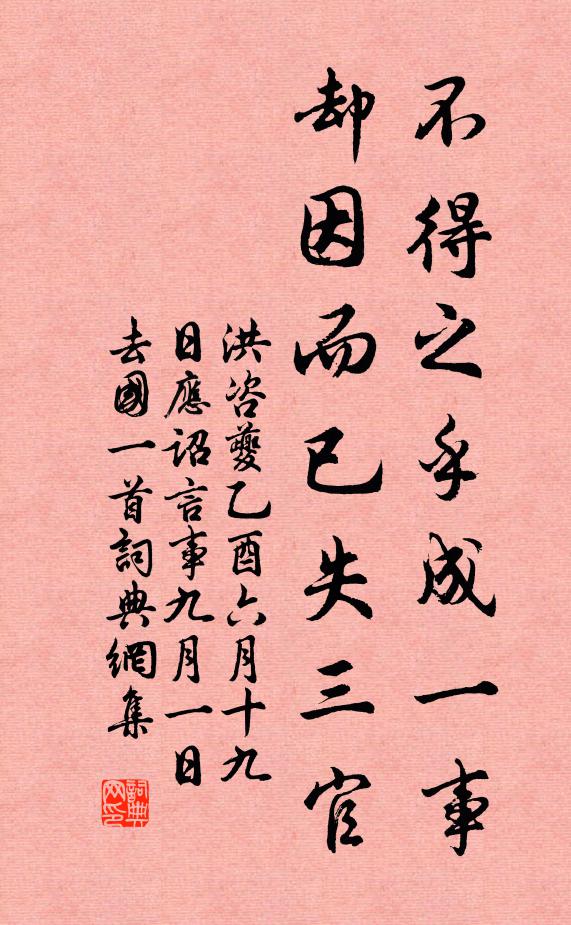 不得之乎成一事
却因而已失三官
洪咨夔乙酉六月十九
日應詔言事九月一日
去國一首詞典網集
詞典網印